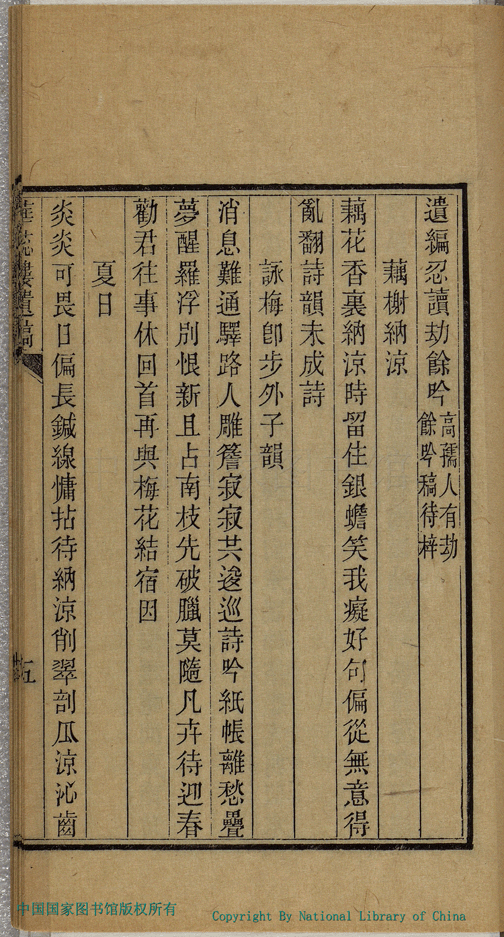 遺編忍讀劫餘吟高孺人有劫
餘吟稿待梓
藕榭納涼
藕花香裏納涼時留住銀蟾笑我癡好句偏從無意得
亂翻詩韻未成詩
詠梅卽步外子韻
消息難通驛路人雕簷寂寂共逡巡詩吟紙帳離愁疊
夢醒羅浮別恨新且占南枝先破臘莫隨凡卉待迎春
勸君往事休回首再與梅花結宿因
夏日
炎炎可畏日偏長鍼線慵拈待納涼削翠剖瓜涼沁齒
樓遺稿
五
中国国家图书馆版权所有
Copyright By National Library of China